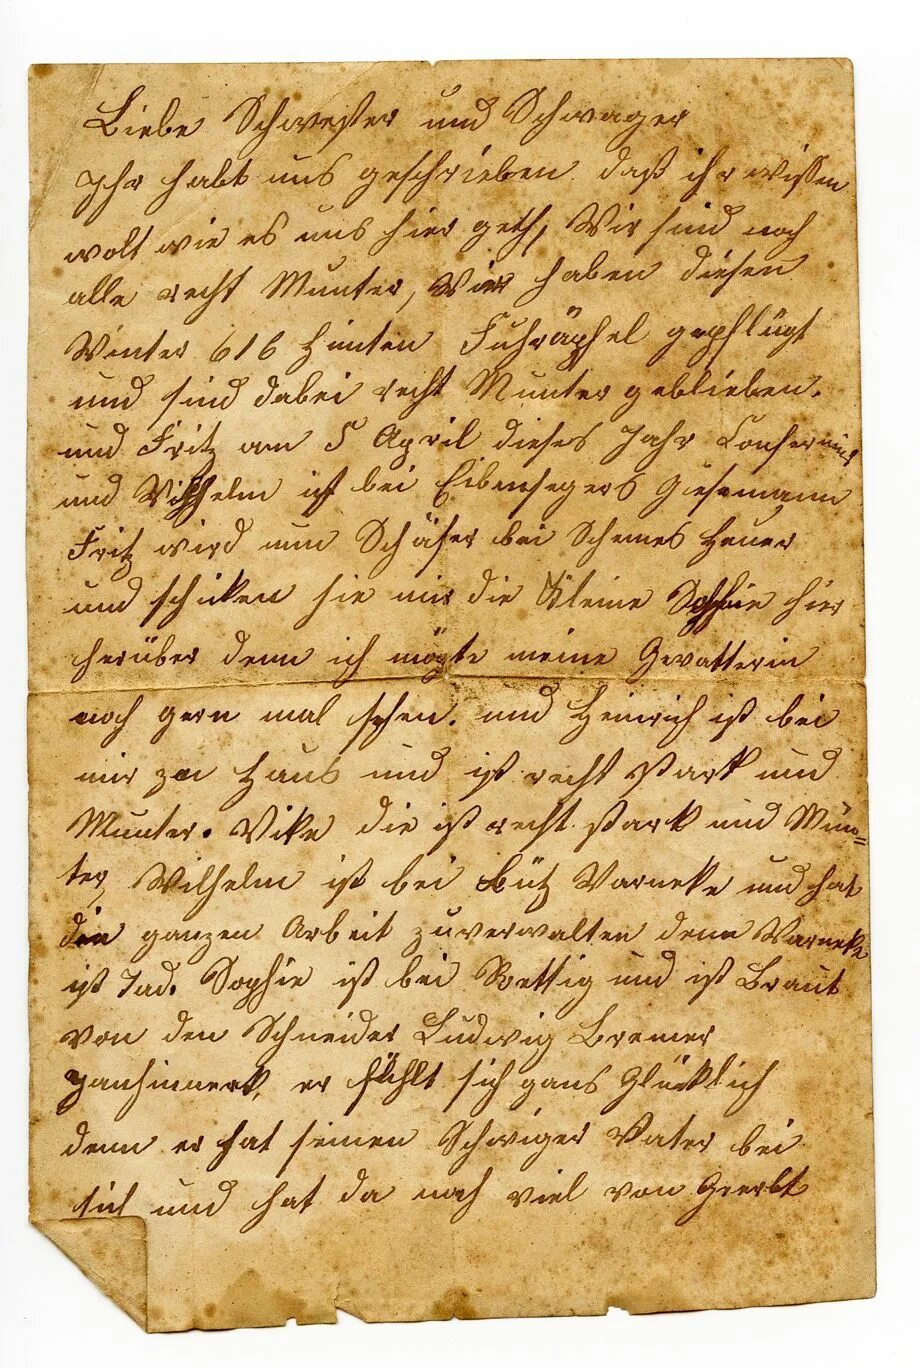 Liebe Schwester und Schwager
Ihr habt uns geschrieben daß ihr wissen
wolt wie es uns hier geth, Wir sind noch
alle recht Munter, Wir haben diesen
Winter 616 Himten gepflügt
und sind dabei recht Munter geblieben.
und Fritz am 5 April dieses Jahr
und Wilhelm ist bei Giesemann
Fritz wird nun Schäfer bei Heuer
und schicken sie mir die Kleine Sophie hier
herüber denn ich mögte meine Gevatterin
noch gern mal sehen. und Heinrich ist bei
mir zu Haus und ist recht stark und
Munter. Vike die ist recht stark und Mun=
ter, Wilhelm ist bei Varneke und hat
die ganzen Arbeit zuverwalten denn Varneke
ist Tod. Sophie ist bei Rettig und ist Braut
von den Schneider Ludwig Bremer
er fühlt sich gans Glücklich
denn er hat seinen Schwiger Vater bei
sich und hat da noch viel von Geerbt